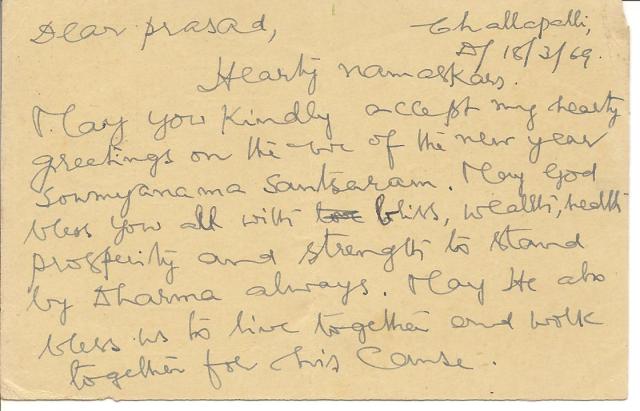 Dear prasad,
Challapalli,
D/ 18/3/69.
Hearty namaskars.
May you kindly accept my hearty
greetings on the eve of the new year
Sowmyanama Samtsaram. May God
bless you all with bliss, wealth, health
prosperity and strength to stand
by Dharma always. May He also
bless us to live together and work
together for this Cause.